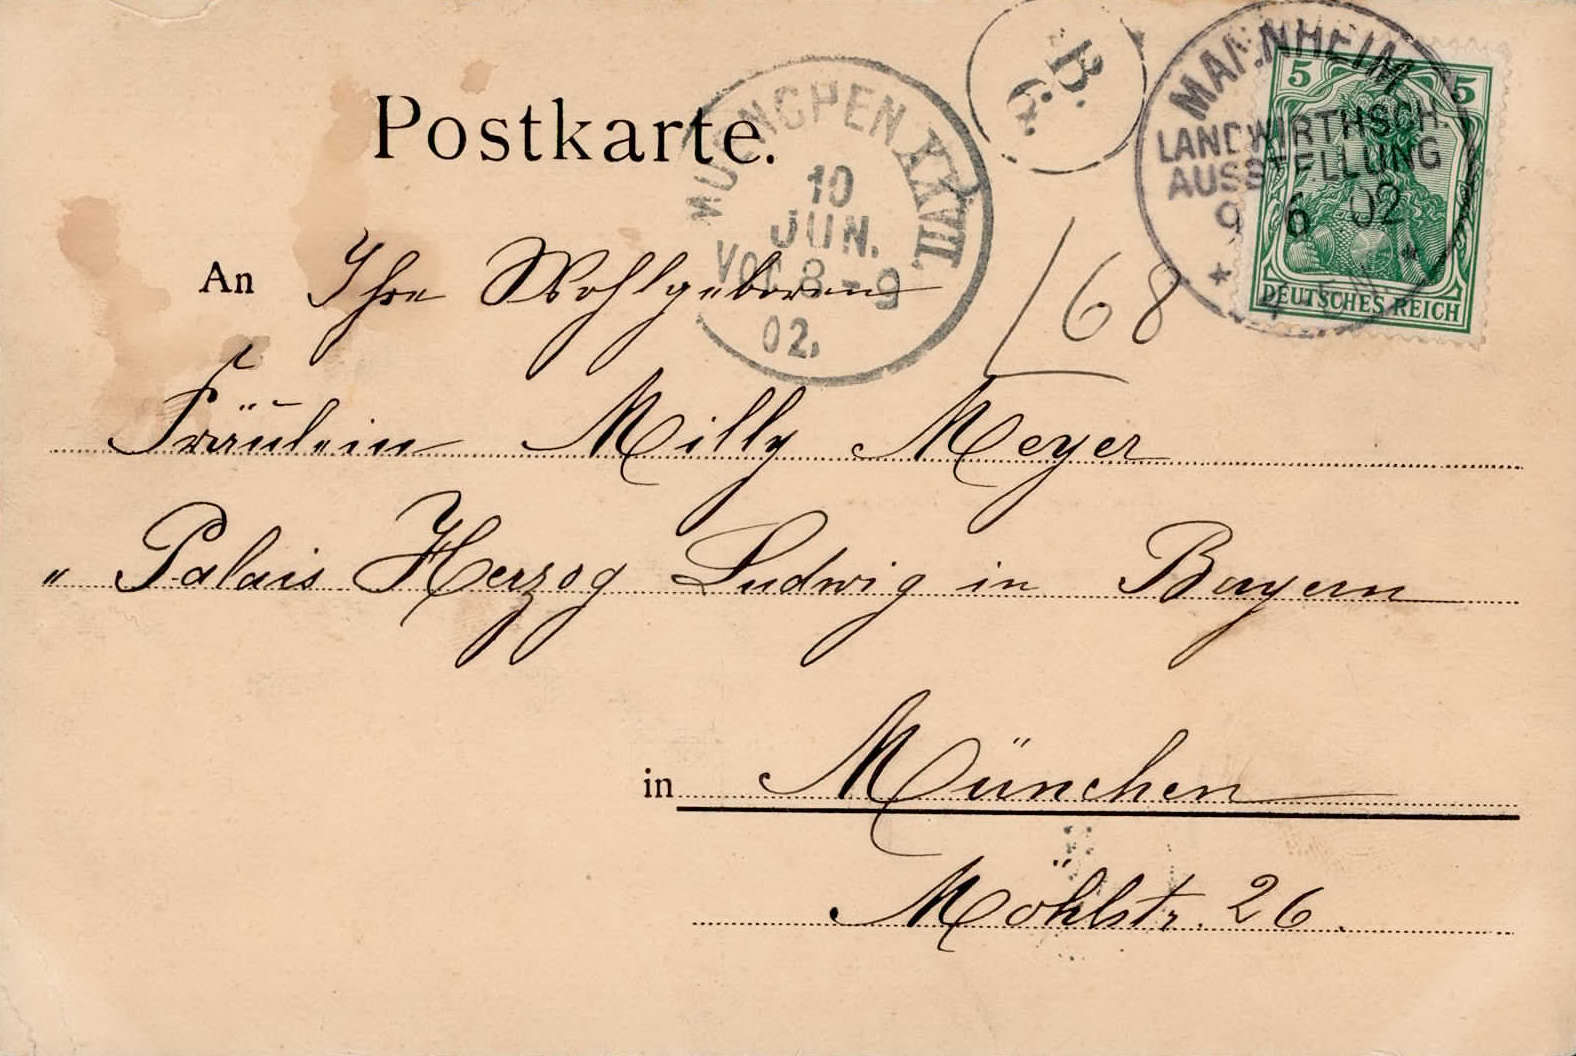 Postkarte.
MUENCHEN XXVII.
10
JUN.
Vor. 8-9
02.
B.
6.
MANNHEIM
LANDWIRTHSCH.
AUSSTELLUNG
9 6 02
5 5
DEUTSCHES REICH
An Ihre Wohlgeboren
168
Fräulein Milly Meyer
" Palais Herzog Ludwig in Bayern
in München
Möhlstr. 26.